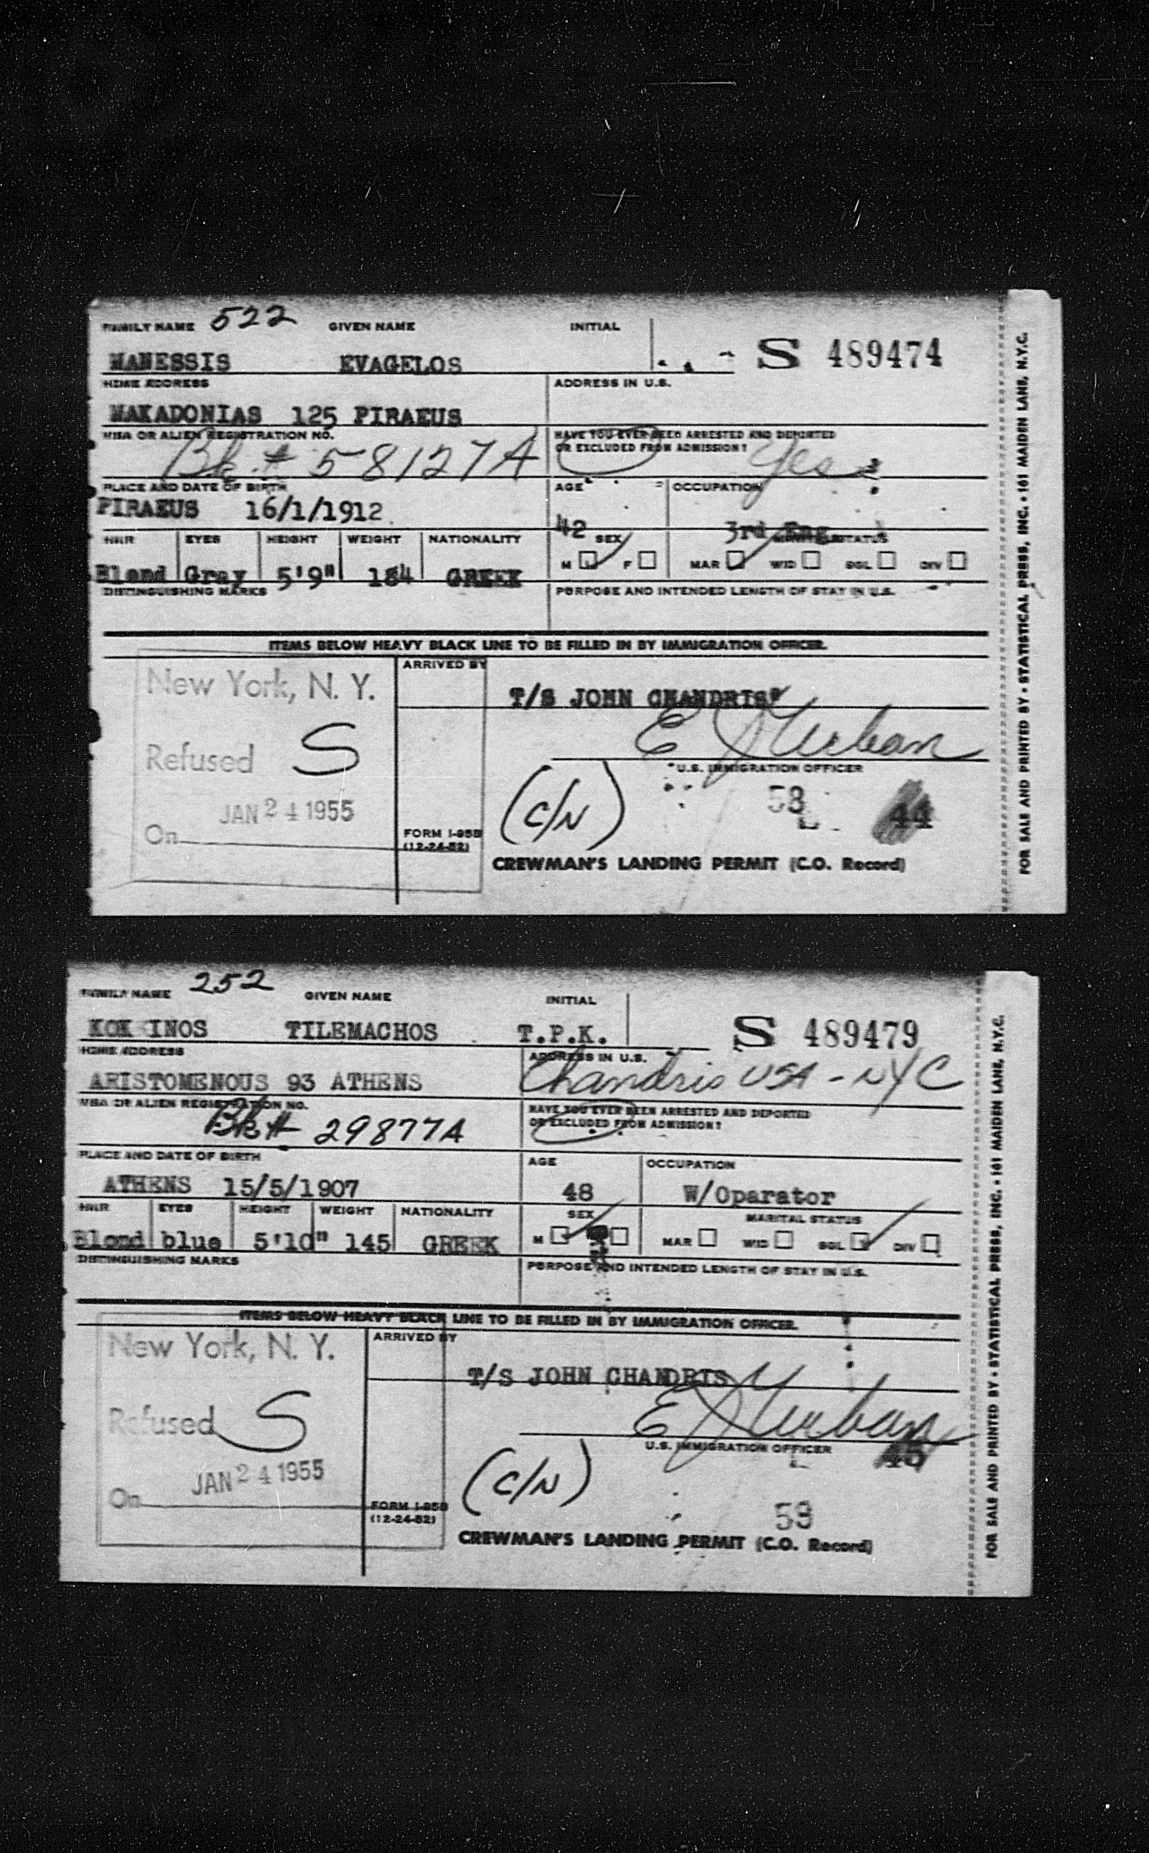 FAMILY NAME 522 GIVEN NAME INITIAL
MANESSIS EVAGELOS S 489474
HOME ADDRESS ADDRESS IN U.S.
MAKADONIAS 125 PIRAEUS
VISA OR ALIEN REGISTRATION NO. HAVE YOU EVER BEEN ARRESTED AND DEPORTED
OR EXCLUDED FROM ADMISSION?
Bk # 58127A Yes
PLACE AND DATE OF BIRTH AGE OCCUPATION
PIRAEUS 16/1/1912 42 3rd Eng
HAIR EYES HEIGHT WEIGHT NATIONALITY SEX MARITAL STATUS
M F MAR WID SGL DIV
Blond Gray 5'9" 184 GREEK
DISTINGUISHING MARKS PURPOSE AND INTENDED LENGTH OF STAY IN U.S.
ITEMS BELOW HEAVY BLACK LINE TO BE FILLED IN BY IMMIGRATION OFFICER.
New York, N. Y. ARRIVED BY
T/S JOHN CHANDRIS"
Refused S
U.S. IMMIGRATION OFFICER
JAN 24 1955 (C/N) 58 44
On
FORM I-95B
(12-24-52)
CREWMAN'S LANDING PERMIT (C.O. Record)
FOR SALE AND PRINTED BY - STATISTICAL PRESS, INC. - 161 MAIDEN LANE, N.Y.C.
FAMILY NAME 252 GIVEN NAME INITIAL
KOK INOS TILEMACHOS T.P.K. S 489479
HOME ADDRESS ADDRESS IN U.S.
ARISTOMENOUS 93 ATHENS Chandris USA - NYC
VISA OR ALIEN REGISTRATION NO. HAVE YOU EVER BEEN ARRESTED AND DEPORTED
OR EXCLUDED FROM ADMISSION?
Bk# 29877A
PLACE AND DATE OF BIRTH AGE OCCUPATION
ATHENS 15/5/1907 48 W/Oparator
HAIR EYES HEIGHT WEIGHT NATIONALITY SEX MARITAL STATUS
M MAR WID SGL DIV
Blond blue 5'10" 145 GREEK
DISTINGUISHING MARKS PURPOSE AND INTENDED LENGTH OF STAY IN U.S.
ITEMS BELOW HEAVY BLACK LINE TO BE FILLED IN BY IMMIGRATION OFFICER.
New York, N. Y. ARRIVED BY
T/S JOHN CHANDRIS
Refused S
U.S. IMMIGRATION OFFICER 45
JAN 24 1955 (C/N)
On
FORM I-95B
(12-24-52) 53
CREWMAN'S LANDING PERMIT (C.O. Record)
FOR SALE AND PRINTED BY - STATISTICAL PRESS, INC. - 161 MAIDEN LANE, N.Y.C.